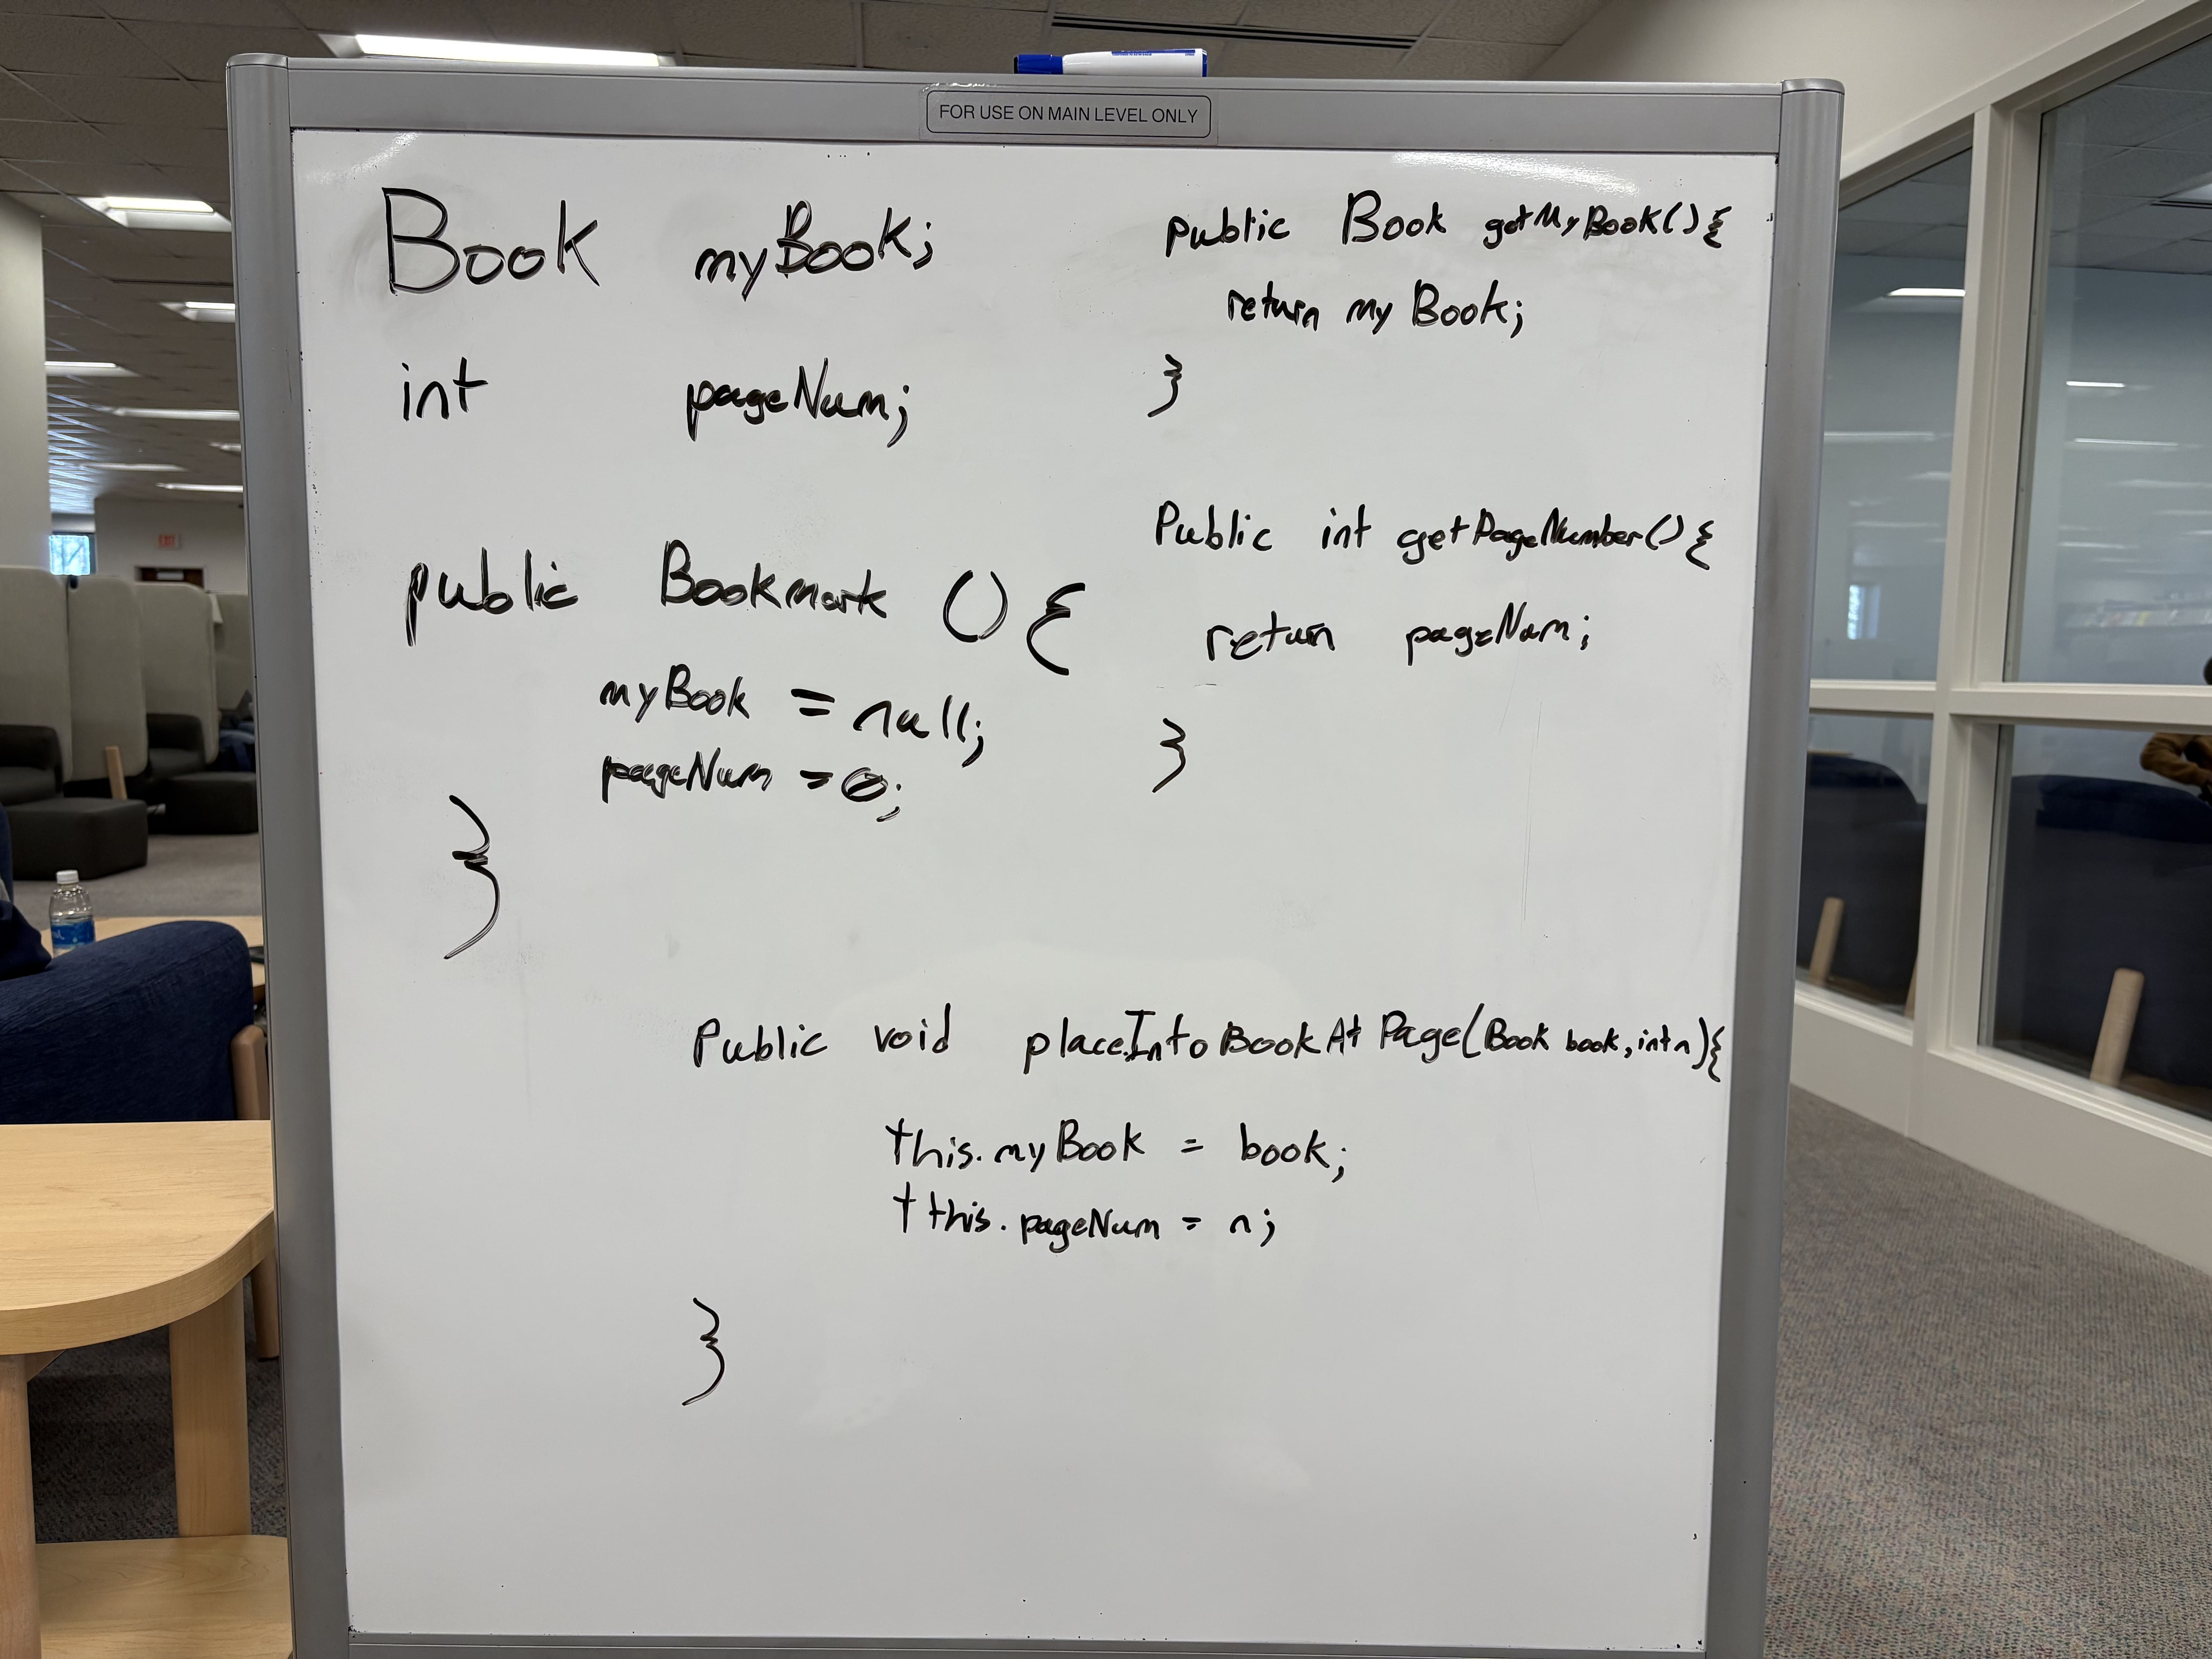 FOR USE ON MAIN LEVEL ONLY
Book myBook;
int pageNum;
public Bookmark () {
myBook = null;
pageNum = 0;
}
public Book getMyBook() {
return myBook;
}
Public int getPageNumber() {
return pageNum;
}
Public void placeIntoBookAtPage(Book book, int n) {
this.myBook = book;
tthis.pageNum = n;
}